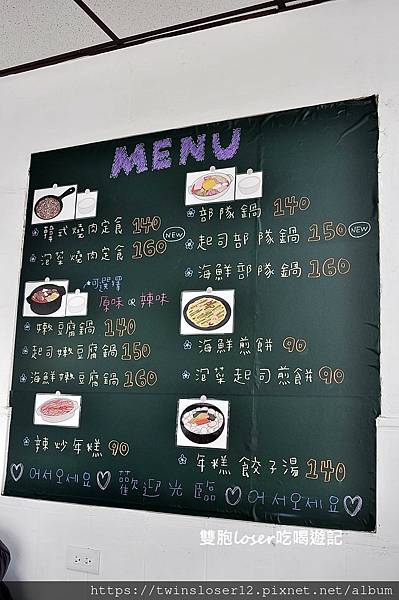 MENU
韓式燒肉定食 140
泡菜燒肉定食 160 NEW
*可選擇
原味 or 辣味
嫩豆腐鍋 140
起司嫩豆腐鍋 150
海鮮嫩豆腐鍋 160
辣炒年糕 90
部隊鍋 140
起司部隊鍋 150 NEW
海鮮部隊鍋 160
海鮮煎餅 90
泡菜起司煎餅 90
年糕餃子湯 140
♡어서오세요♡ 歡迎光臨 ♡어서오세요♡
雙胞loser吃喝遊記
https://twinsloser12.pixnet.net/album